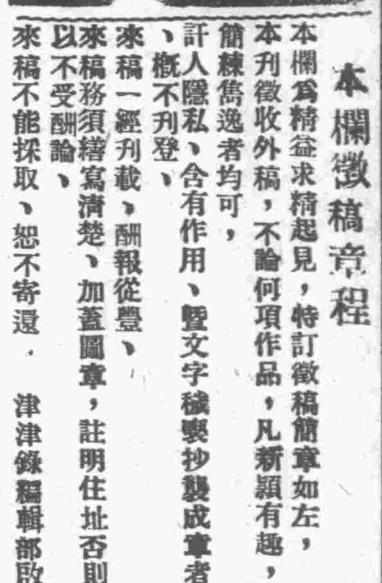 本欄徵稿章程
本欄爲精益求精起見，特訂徵稿簡章如左，
本刊徵收外稿，不論何項作品，凡新穎有趣，
簡練雋逸者均可，
訐人隱私、含有作用、曁文字穢褻抄襲成章者
、槪不刊登、
來稿一經刊載，酬報從豐、
來稿務須繕寫淸楚、加蓋圖章，註明住址否則
以不受酬論、
來稿不能採取、恕不寄還．　津津錄編輯部啟